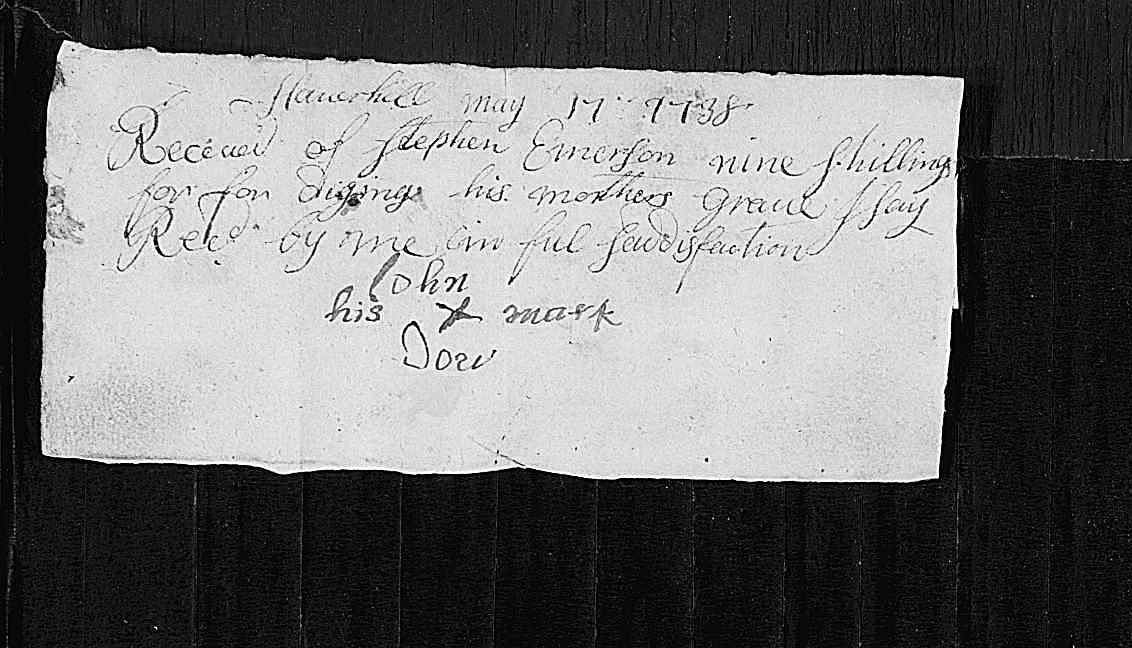 Hauerhill may 17 1738
Receued of Stephen Emerson nine shillings
for for diging his mothers graue I say
Recd by me in ful saidisfaction
John
his X mark
Dow